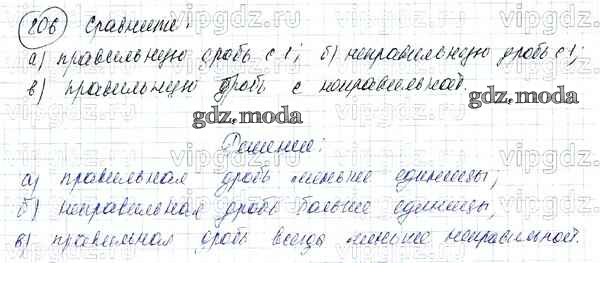 206 Сравните:
а) правильную дробь с 1; б) неправильную дробь с 1;
в) правильную дробь с неправильной.
gdz.moda
gdz.moda
Решение:
а) правильная дробь меньше единицы;
б) неправильная дробь больше единицы;
в) правильная дробь всегда меньше неправильной.
vipgdz.ru